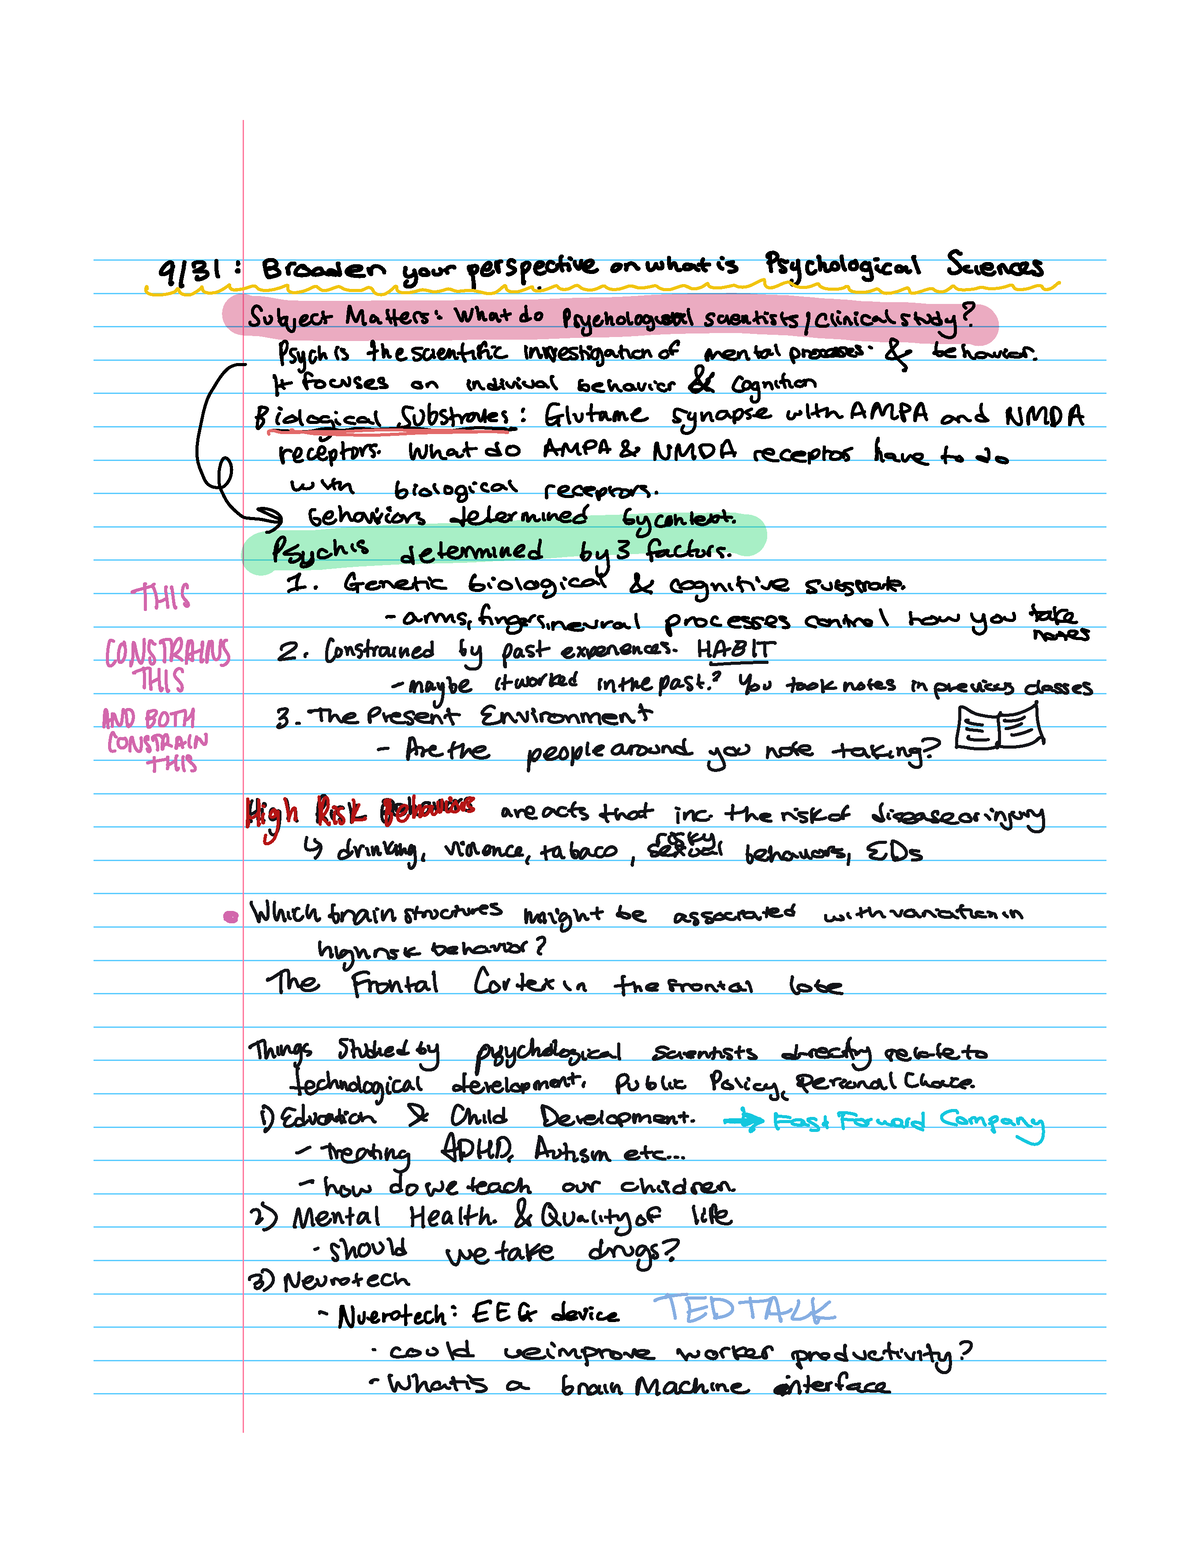 9/31: Broaden your perspective on what is Psychological Sciences
Subject Matters: What do Psychological scientists/Clinical study?
Psych is the scientific investigation of mental processes. & behavior.
It focuses on indivival behavior & Cognition
Biological Substrates: Glutame synapse with AMPA and NMDA
receptors. What do AMPA & NMDA receptor have to do
with biological receptors.
Behaviors determined by context.
Psych is determined by 3 factors.
1. Genetic biological & cognitive substrate.
THIS
- arms, fingers, neural processes control how you take
notes
CONSTRAINS
2. Constrained by past experiences. HABIT
THIS
- maybe it worked in the past? You took notes in previous classes
AND BOTH
3. The Present Environment
CONSTRAIN
- Are the people around you note taking?
THIS
High Risk Behaviors are acts that inc. the risk of disease or injury
↳ drinking, violence, tabaco, risky sexual behaviors, EDs
• Which brain structures might be associated with variation in
high risk behavior?
The Frontal Cortex in the frontal lobe
Things Studied by psychological scientists directly relate to
technological development, Public Policy, Personal Choice.
1) Education & Child Development. → Fast Forward Company
- Treating ADHD, Autism etc...
- how do we teach our children.
2) Mental Health. & Quality of life
- should we take drugs?
3) Neurotech
- Nuerotech: EEG device TED TALK
· could we improve worker productivity?
- What is a brain Machine interface